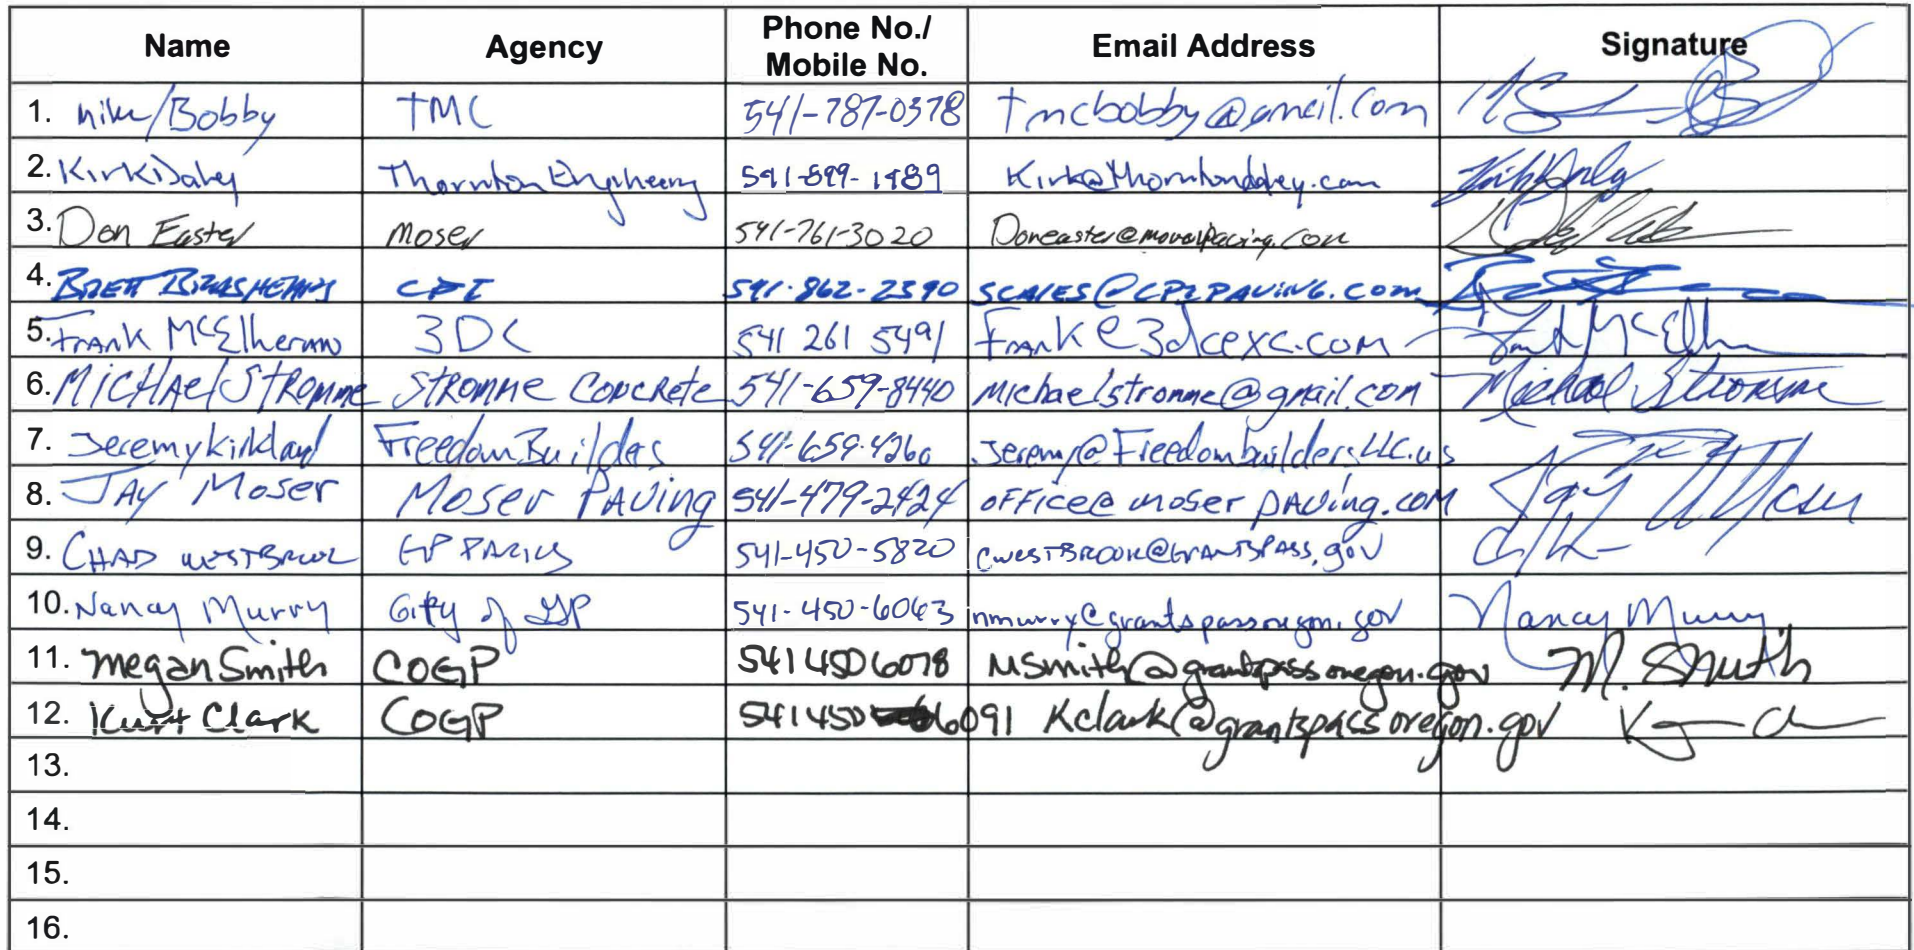 Name Agency Phone No./ Mobile No. Email Address Signature
1. Mike/Bobby TMC 541-787-0378 tmcbobby@gmail.com
2. Kirk Daley Thornton Engineering 541-899-1489 Kirk@thorntondaley.com
3. Don Easter Moser 541-761-3020
4. BRETT CPI 541-862-2390 SCALES@CPIPAVING.COM
5. Frank McElheran 3DC 541 261 5491 Frank@3dcexc.com
6. Michael Stromme Stromme Concrete 541-659-8440 michaelstromme@gmail.com Michael Stromme
7. Jeremy Kirkland Freedom Builders 541-659-4260 Jeremy@FreedombuildersLLC.us
8. JAY Moser Moser PAVing 541-479-2424 OFFice@moserpAVing.com Jay Moser
9. CHAD WESTBROOK GP PARKS 541-450-5820 CWESTBROOK@GRANTSPASS.gov
10. Nancy Murry City of GP 541-450-6063 nmurry@grantspassoregon.gov Nancy Murry
11. Megan Smith COGP 541 450 6078 MSmith@grantspassoregon.gov M. Smith
12. Kurt Clark COGP 541 450 6091 Kclark@grantspassoregon.gov
13.
14.
15.
16.